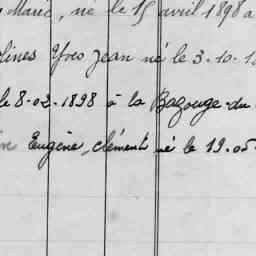 Marie, né le 15 avril 1898 a
lines Yves Jean né le 3-10-1
le 8-02-1898 à la Bazouge-du
Eugène, clément né le 19.05